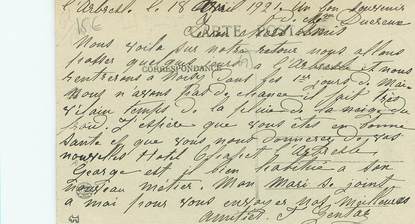 l'Arbresle. le 18 Avril 1921 Un bon souvenir
15€
de Mme Ducreux
CARTE POSTALE
Nous voila sur notre retour nous allons
passer quelques jours a l'Arbresle et nous
CORRESPONDANCE
rentrerons a Moisy dans les 1ers jours de Mai
Nous n'avons pas de chance il fait très
vilain temps de la pluie de la neige du
froid. J'espère que vous êtes en bonne
santé et que vous nous donnerez de vos
nouvelles Hotel Arbresle
George est bien habitué a son
nouveau métier. Mon Mari se joint
a moi pour vous envoyer nos meilleures
amitiés